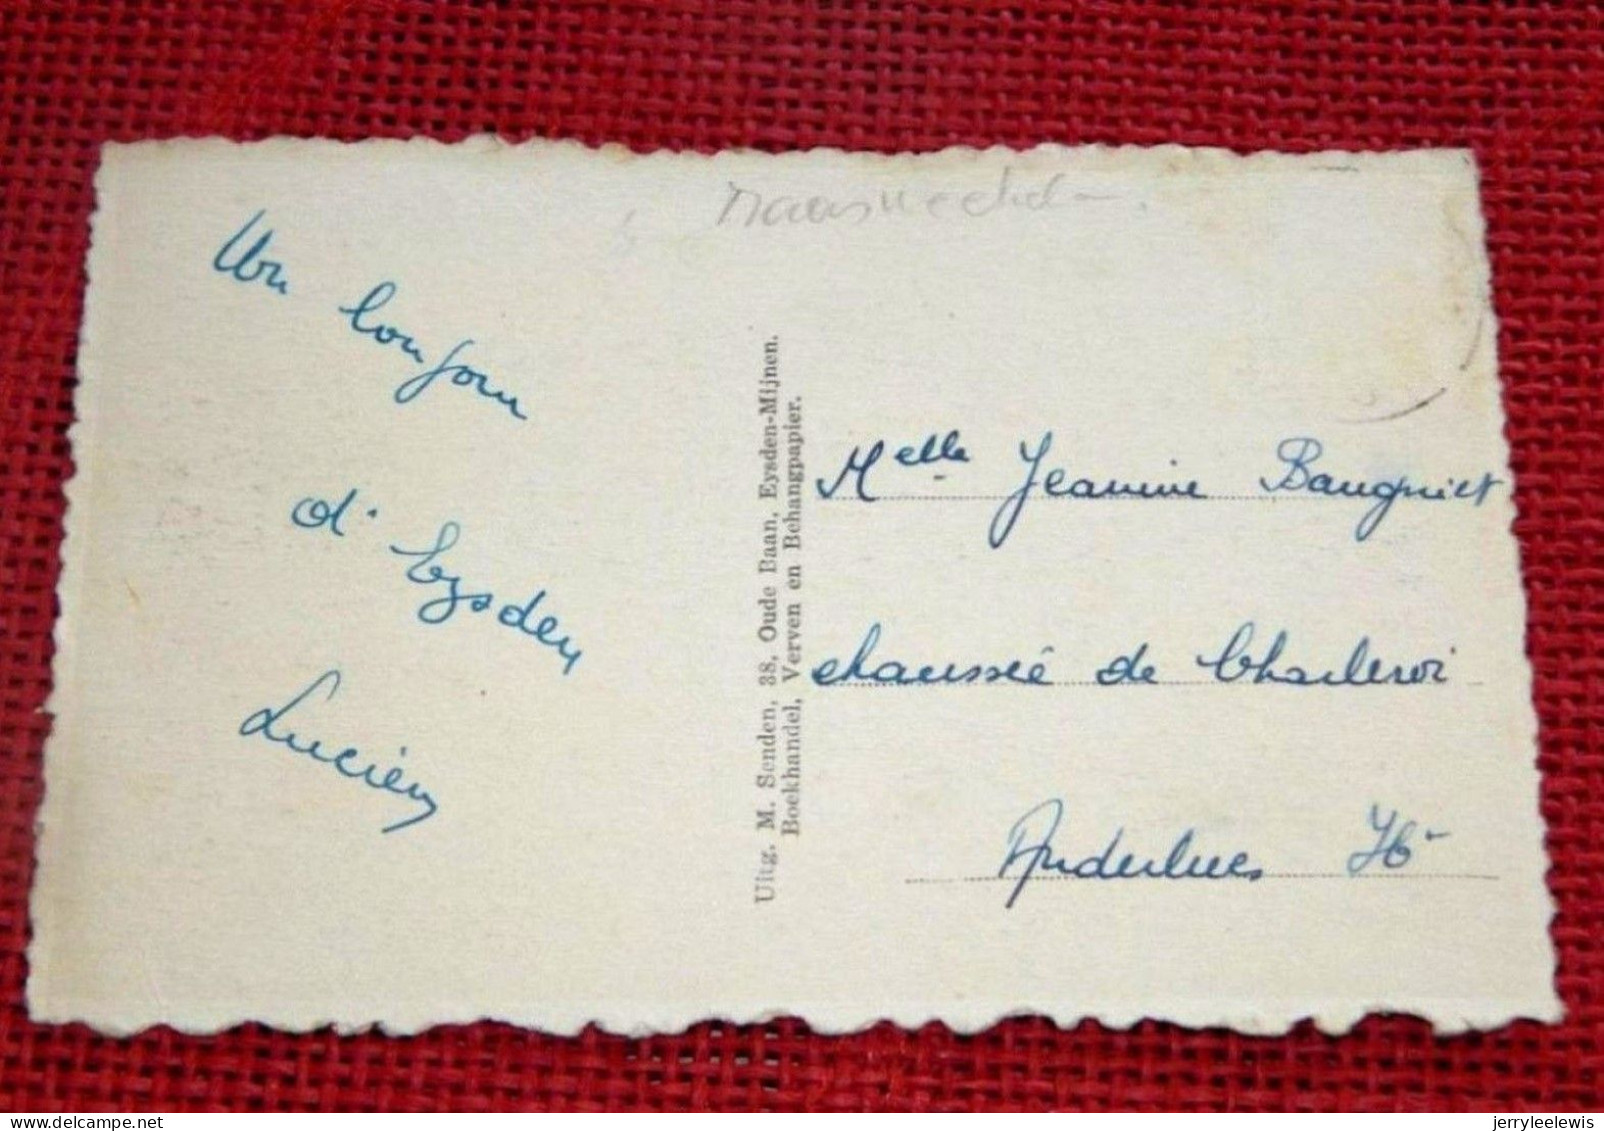 Maasmechelen.
Un bonjour
d'Eysden
Lucien
Uitg. M. Senden, 38, Oude Baan, Eysden-Mijnen.
Boekhandel, Verven en Behangpapier.
Melle Jeannine Baugniet
chaussée de Charleroi
Anderlues Ht
delcampe.net
jerryleelewis